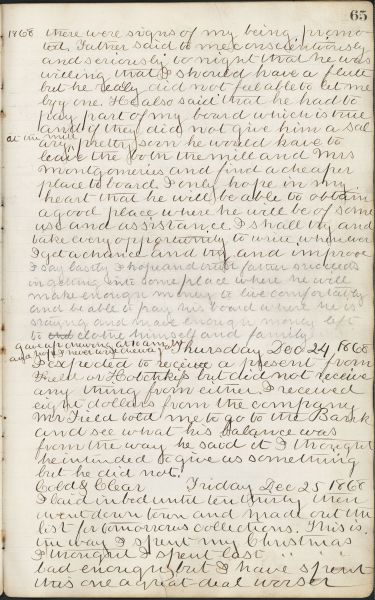 65
1868 there were signs of my being promo
ted. Father said to me conscientiously
and seriously to night that he was
willing that I should have a flute
but he really did not feel able to let me
buy one. He also said that he had to
pay part of my board which is true
and if they did not give him a sal
at the mill
ary pretty soon he would have to
leave the both the mill and Mrs
Montgomeries and find a cheaper
place to board. I only hope in my
heart that he will be able to obtain
a good place where he will be of some
use and assistance. I shall try and
take every opportunity to write whenever
I get a chance and try and improve
I say lastly I hope and trust father succeeds
in getting into some place where he will
make enough money to live comfortably
and be able to pay his board where he is
staying and have enough money left
to clothe himself and family
Thursday Dec 24, 1868
I expected to receive a present from
Field or Hotchkiss but did not receive
any thing from either. I received
eight dollars from the company
Mr Field told me to go to the Bank
and see what his balance was
from the way he said it I thought
he intended to give us something
but he did not.
Cold & Clear Friday Dec 25 1868
I laid in bed until ten thirty then
went down town and made out the
list for tomorrows collections. This is
the way I spent my Christmas
I thought I spent last " " "
bad enough but I have spent
this one a great deal worser